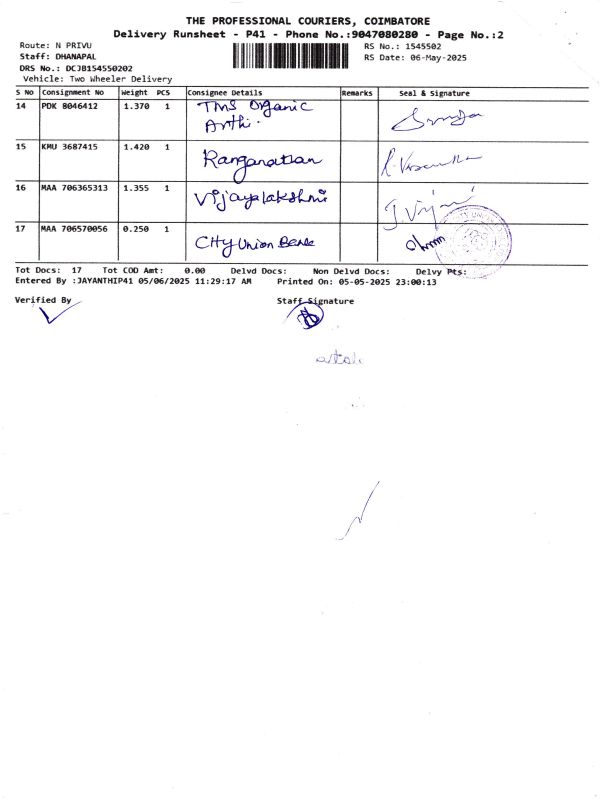 THE PROFESSIONAL COURIERS, COIMBATORE
Delivery Runsheet - P41 - Phone No.:9047080280 - Page No.:2
Route: N PRIVU RS No.: 1545502
Staff: DHANAPAL RS Date: 06-May-2025
DRS No.: DCJB154550202
Vehicle: Two Wheeler Delivery
S No Consignment No Weight PCS Consignee Details Remarks Seal & Signature
14 PDK 8046412 1.370 1 TMS Organic
Arthi.
15 KMU 3687415 1.420 1 Ranganathan
16 MAA 706365313 1.355 1 Vijayalakshmi
17 MAA 706570056 0.250 1 City Union Bank
Tot Docs: 17 Tot COD Amt: 0.00 Delvd Docs: Non Delvd Docs: Delvy Pts:
Entered By :JAYANTHIP41 05/06/2025 11:29:17 AM Printed On: 05-05-2025 23:00:13
Verified By Staff Signature